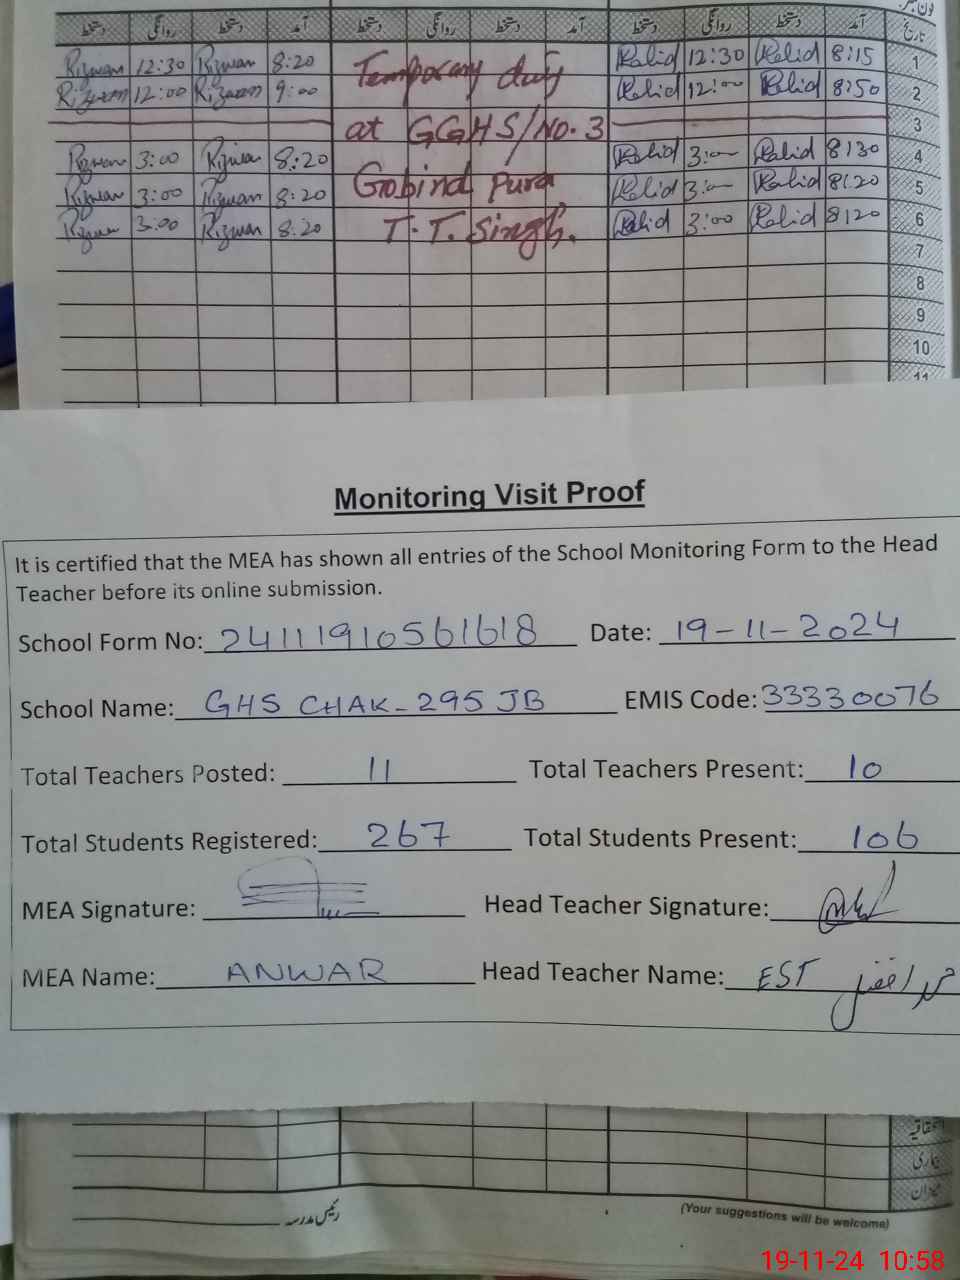 فون نمبر
دستخط روانگی دستخط آمد دستخط روانگی دستخط آمد دستخط روانگی دستخط آمد تاریخ
Rizwan 12:30 Rizwan 8:20 Temporary duty Khalid 12:30 Khalid 8:15 1
Rizwan 12:00 Rizwan 9:00 Khalid 12:00 Khalid 8:50 2
at GGHS/No. 3 3
Rizwan 3:00 Rizwan 8:20 Khalid 3:00 Khalid 8:30 4
Rizwan 3:00 Rizwan 8:20 Gobind Pura Khalid 3:00 Khalid 8:20 5
Rizwan 3:00 Rizwan 8:20 T.T.Singh. Khalid 3:00 Khalid 8:20 6
7
8
9
10
11
Monitoring Visit Proof
It is certified that the MEA has shown all entries of the School Monitoring Form to the Head
Teacher before its online submission.
School Form No: 24111910561618 Date: 19-11-2024
School Name: GHS CHAK-295 JB EMIS Code: 33330076
Total Teachers Posted: 11 Total Teachers Present: 10
Total Students Registered: 267 Total Students Present: 106
MEA Signature: Head Teacher Signature:
MEA Name: ANWAR Head Teacher Name: EST محمد افضل
اتفاقیہ
بیماری
میزان
رئیس مدرسہ
(Your suggestions will be welcome)
19-11-24 10:58